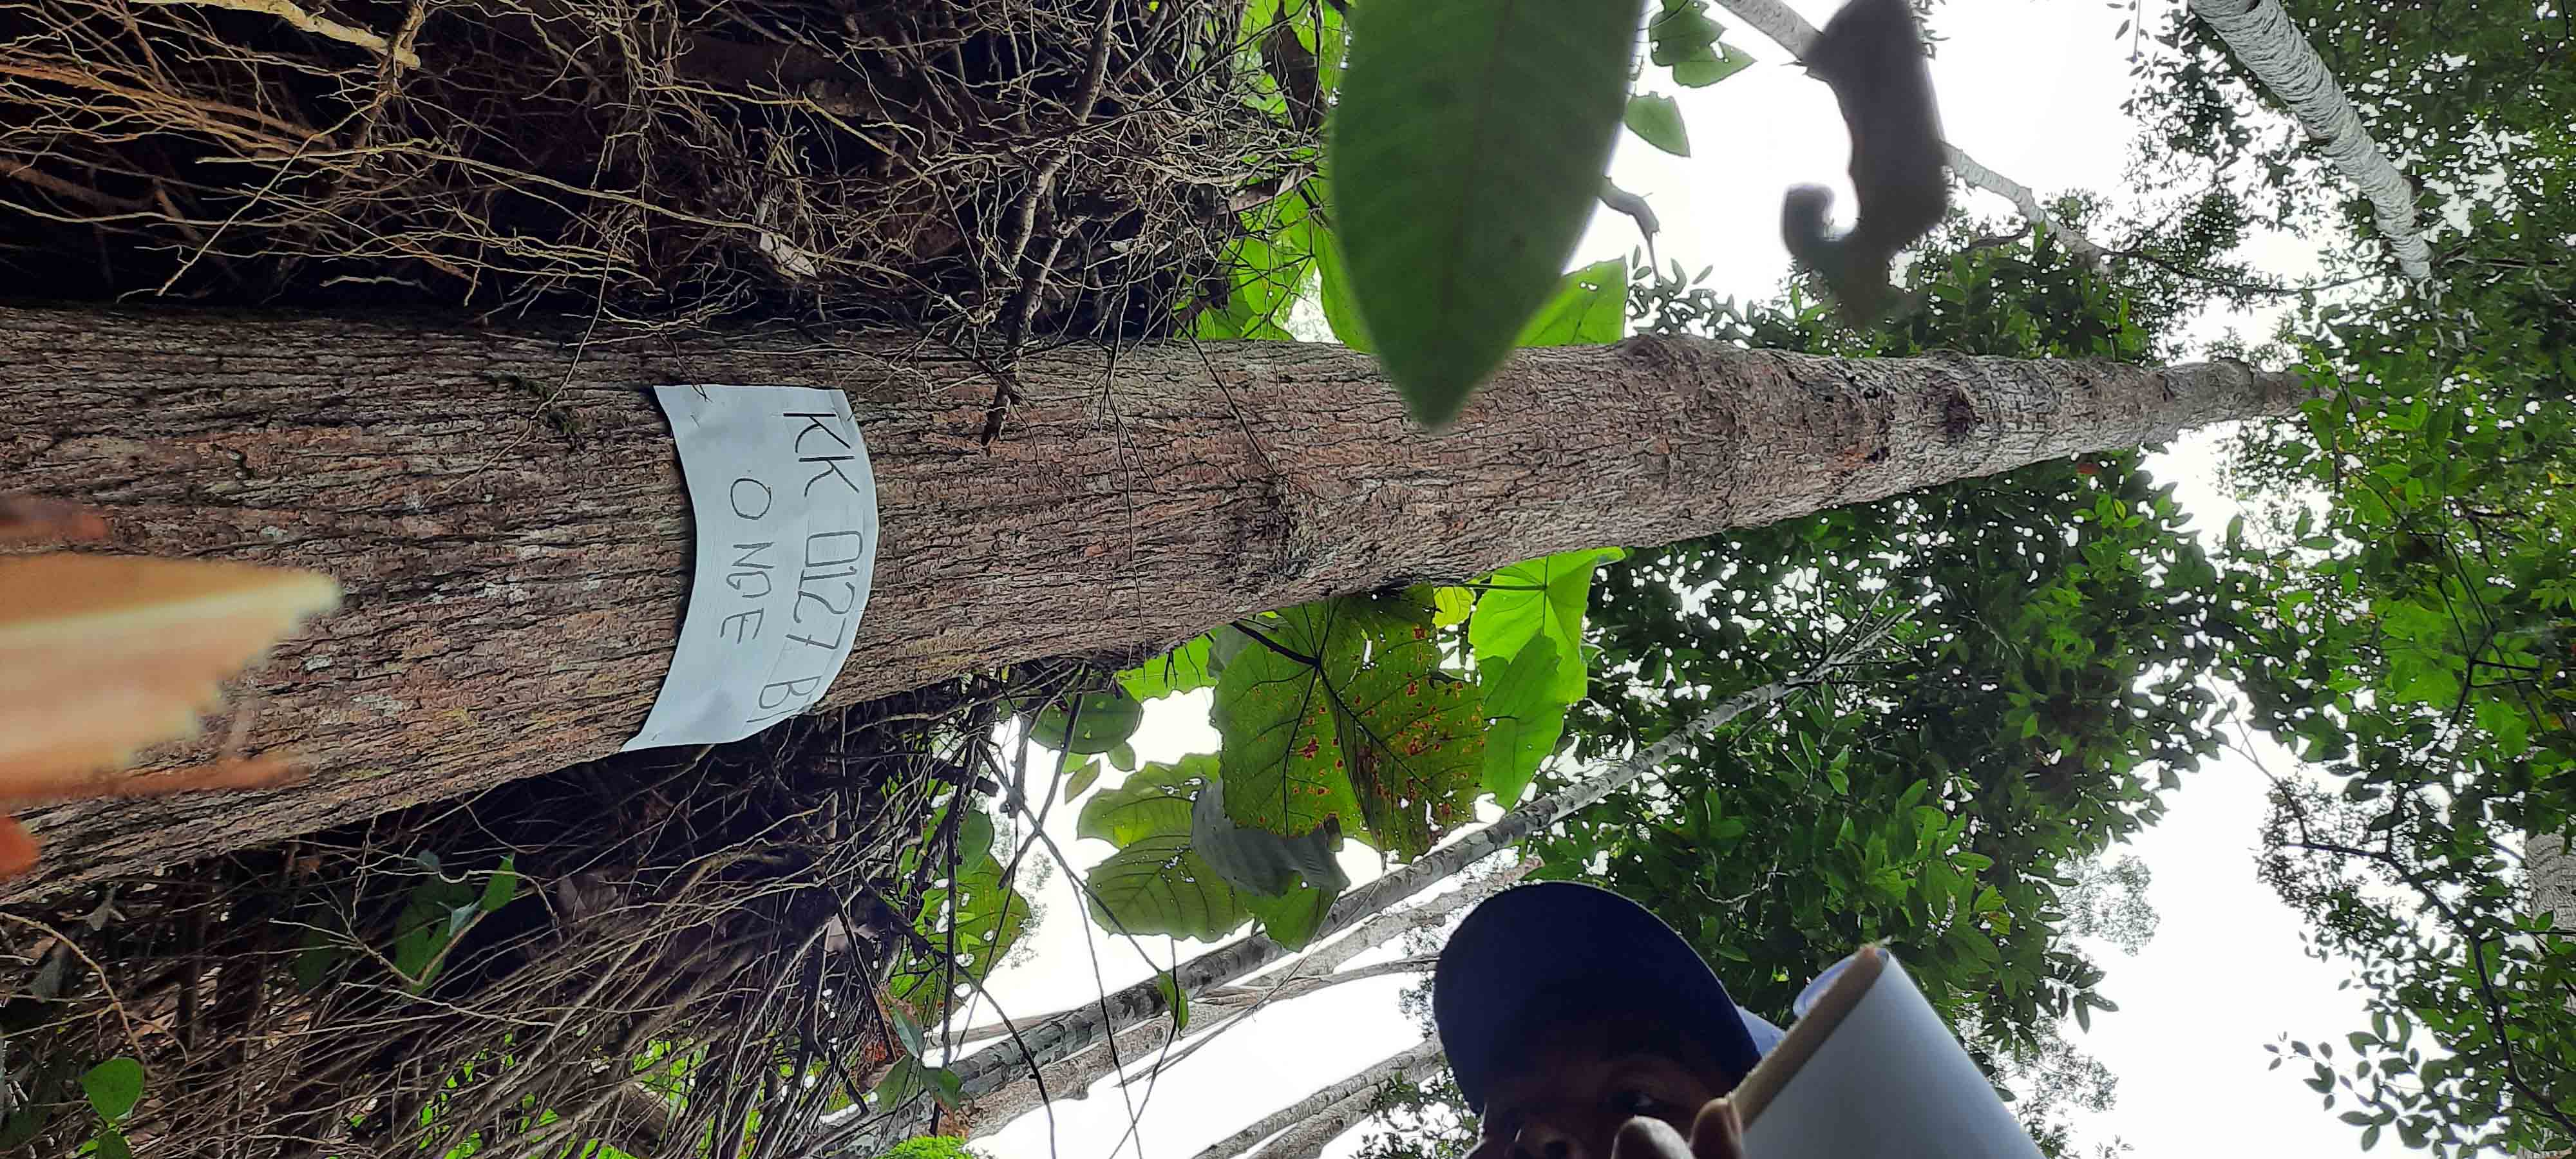 KK 0127 BI
ONGE